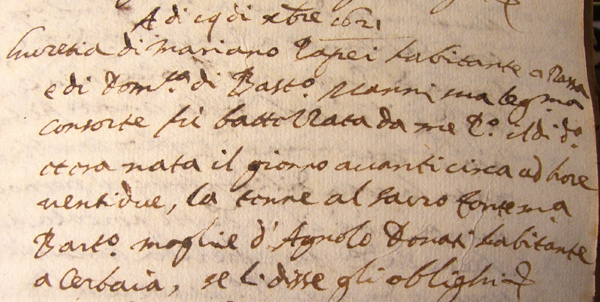 A di 19 di xbre 1621
Lucretia di Mariano Papei habitante a Massa
e di Dom.ca di Bast.o Nanni sua leg.ma
consorte fu battezzata da me R.o il di d.o
et era nata il giorno avanti circa ad hore
ventidue, la tenne al sacro fonte m.a
Bart.o moglie d'Agnolo Donati habitante
a Cerbaia, se li disse gli oblighi